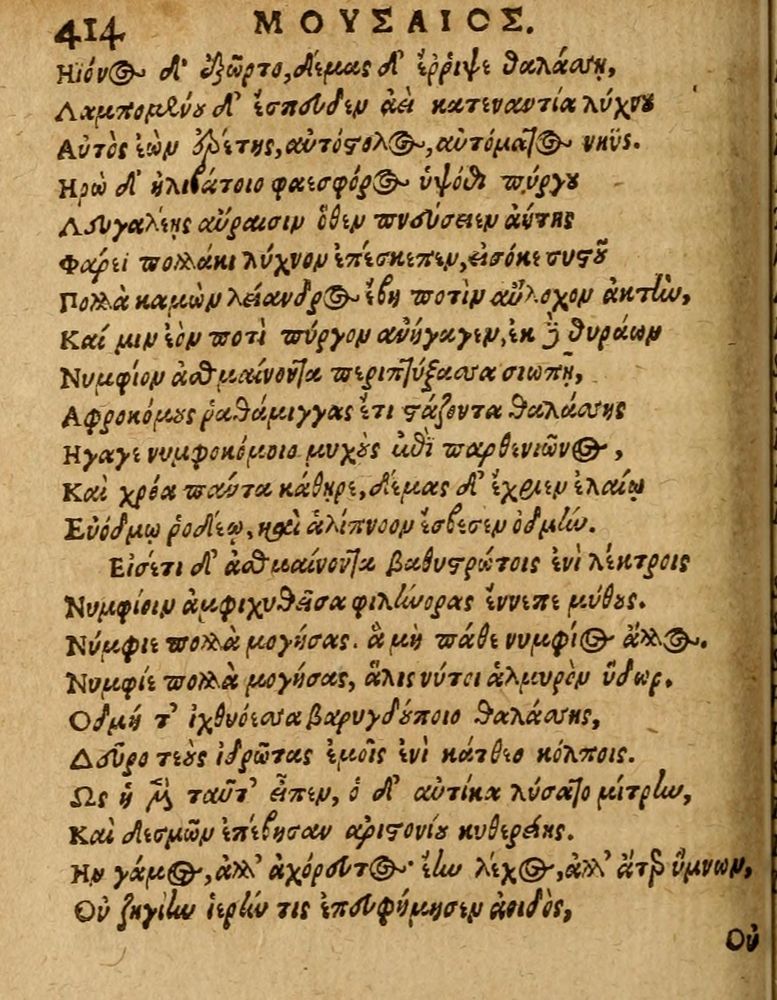 414 ΜΟΥΣΑΙΟΣ.
Ηϊόνος δ' ἐξῶρτο, δέμας δ' ἔρριψε θαλάσσῃ,
Λαμπομένου δ' ἔσπευδεν ἀεὶ κατεναντία λύχνου
Αὐτὸς ἐὼν ἐρέτης, αὐτόστολος, αὐτόματος νηῦς.
Ηρὼ δ' ἠλιβάτοιο φαεσφόρος ὑψόθι πύργου
Λευγαλέῃς αὔραισιν ὅθεν πνεύσειεν ἀύτης
Φάρεϊ πολλάκι λύχνον ἐπέσκεπεν, εἰσόκε σηστοῦ
Πολλὰ καμὼν λείανδρος ἔβη ποτὶν αὔλοχον ἀκτὴν,
Καί μιν ἑὸν ποτὶ πύργον ἀνήγαγεν, ἐκ δὲ θυράων
Νυμφίον ἀσθμαίνοντα περιπτύξασα σιωπῇ,
Αφροκόμους ῥαθάμιγγας ἔτι στάζοντα θαλάσσης
Ηγαγε νυμφοκόμοιο μυχοὺς ἐπὶ παρθενιῶνος,
Καὶ χρόα πάντα κάθηρε, δέμας δ' ἔχριεν ἐλαίῳ
Εὐόδμῳ ῥοδέῳ, καὶ ἁλίπνοον ἔσβεσεν ὀδμήν.
Εἰσέτι δ' ἀσθμαίνοντα βαθυστρώτοις ἐνὶ λέκτροις
Νυμφίον ἀμφιχυθεῖσα φιλήνορας ἔννεπε μύθους.
Νύμφιε πολλὰ μογήσας. ἃ μὴ πάθε νυμφίος ἄλλος.
Νυμφίε πολλὰ μογήσας, ἅλις νύτοι ἁλμυρὸν ὕδωρ.
Οδμή τ' ἰχθυόεσσα βαρυγδούποιο θαλάσσης,
Δεῦρο τεοὺς ἱδρῶτας ἐμοῖς ἐνὶ κάτθεο κόλποις.
Ως ἡ μὲν ταῦτ' εἶπεν, ὁ δ' αὐτίκα λύσατο μίτρην,
Καὶ θεσμῶν ἐπέβησαν ἀριστονόου κυθερείης.
Ην γάμος, ἀλλ' ἀχόρευτος· ἔην λέχος, ἀλλ' ἄτερ ὕμνων,
Οὐ ζηγίην ἱερήν τις ἐπευφήμησεν ἀοιδὸς,
Οὐ